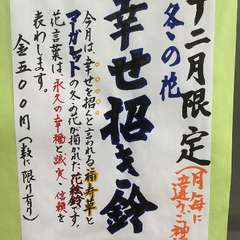 十二月限定
月毎に
違う
冬の花
幸せ招き鈴
今月は、幸せを招くと言われる福寿草と
マーガレットの冬の花が描かれた花絵鈴です。
花言葉は、永久の幸福と誠実・信頼を
表わします。
金五〇〇円(数に限り有り)